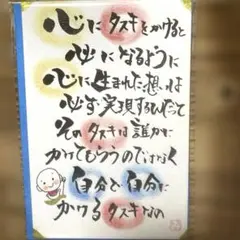 心に タスキをかけると
必になるように
心に生まれた想いは
必ず実現するんだって
その タスキは誰かに
かけてもらうのではなく
自分で自分に
かける タスキなの